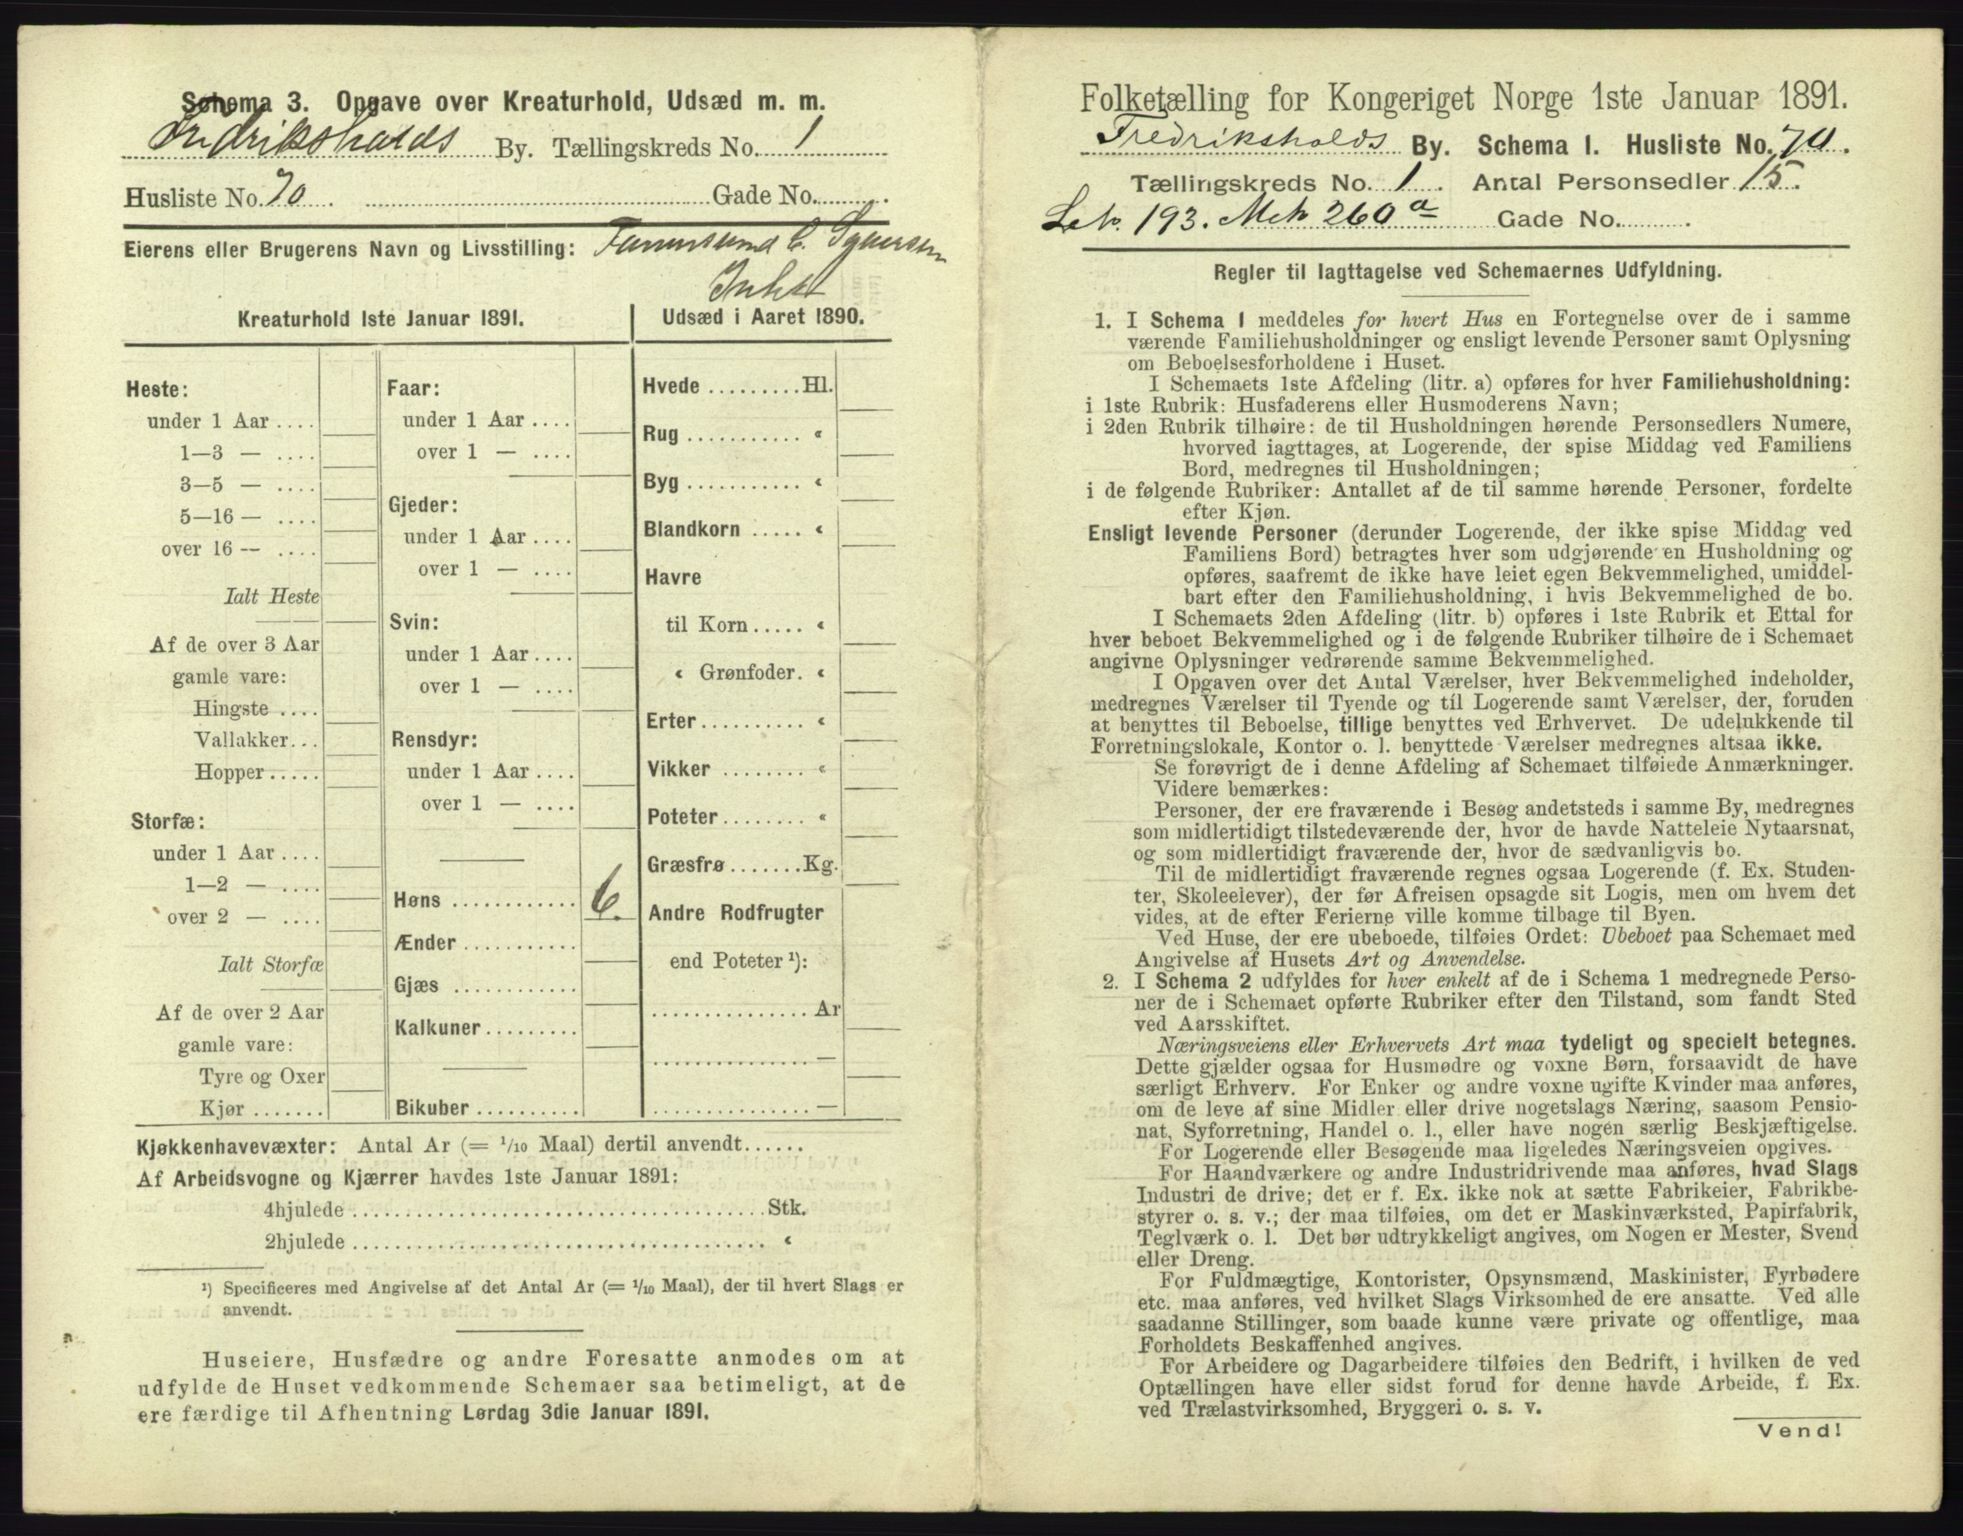 Schema 3. Opgave over Kreaturhold, Udsæd m. m.
Fredriksholds By. Tællingskreds No. 1
Husliste No. 70 Gade No.
Eierens eller Brugerens Navn og Livsstilling:
Kreaturhold 1ste Januar 1891.
Heste:
under 1 Aar ....
1—3 — ....
3—5 — ....
5—16 — ....
over 16 — ....
Ialt Heste
Af de over 3 Aar
gamle vare:
Hingste ....
Vallakker...
Hopper.....
Storfæ:
under 1 Aar ....
1—2 — ....
over 2 — ....
Ialt Storfæ
Af de over 2 Aar
gamle vare:
Tyre og Oxer
Kjør ......
Faar:
under 1 Aar ....
over 1 — ....
Gjeder:
under 1 Aar....
over 1 — ....
Svin:
under 1 Aar....
over 1 — ....
Rensdyr:
under 1 Aar....
over 1 — ....
Høns ............ 6.
Ænder ...........
Gjæs ............
Kalkuner.........
Bikuber ..........
Udsæd i Aaret 1890.
Hvede .........Hl.
Rug ........... "
Byg ........... "
Blandkorn ..... "
Havre
til Korn..... "
" Grønfoder. "
Erter.......... "
Vikker ........ "
Poteter........ "
Græsfrø.......Kg.
Andre Rodfrugter
end Poteter ¹):
............... Ar
............... —
............... —
Kjøkkenhavevæxter: Antal Ar (= 1/10 Maal) dertil anvendt......
Af Arbeidsvogne og Kjærrer havdes 1ste Januar 1891:
4hjulede ........................................Stk.
2hjulede ........................................ "
¹) Specificeres med Angivelse af det Antal Ar (= 1/10 Maal), der til hvert Slags er
anvendt.
Huseiere, Husfædre og andre Foresatte anmodes om at
udfylde de Huset vedkommende Schemaer saa betimeligt, at de
ere færdige til Afhentning Lørdag 3die Januar 1891.
Folketælling for Kongeriget Norge 1ste Januar 1891.
Fredriksholds By. Schema 1. Husliste No. 70.
Tællingskreds No. 1. Antal Personsedler 15.
193. 260 a Gade No.
Regler til Iagttagelse ved Schemaernes Udfyldning.
1. I Schema 1 meddeles for hvert Hus en Fortegnelse over de i samme
værende Familiehusholdninger og ensligt levende Personer samt Oplysning
om Beboelsesforholdene i Huset.
I Schemaets 1ste Afdeling (litr. a) opføres for hver Familiehusholdning:
i 1ste Rubrik: Husfaderens eller Husmoderens Navn;
i 2den Rubrik tilhøire: de til Husholdningen hørende Personsedlers Numere,
hvorved iagttages, at Logerende, der spise Middag ved Familiens
Bord, medregnes til Husholdningen;
i de følgende Rubriker: Antallet af de til samme hørende Personer, fordelte
efter Kjøn.
Ensligt levende Personer (derunder Logerende, der ikke spise Middag ved
Familiens Bord) betragtes hver som udgjørende en Husholdning og
opføres, saafremt de ikke have leiet egen Bekvemmelighed, umiddel-
bart efter den Familiehusholdning, i hvis Bekvemmelighed de bo.
I Schemaets 2den Afdeling (litr. b) opføres i 1ste Rubrik et Ettal for
hver beboet Bekvemmelighed og i de følgende Rubriker tilhøire de i Schemaet
angivne Oplysninger vedrørende samme Bekvemmelighed.
I Opgaven over det Antal Værelser, hver Bekvemmelighed indeholder,
medregnes Værelser til Tyende og til Logerende samt Værelser, der, foruden
at benyttes til Beboelse, tillige benyttes ved Erhvervet. De udelukkende til
Forretningslokale, Kontor o. l. benyttede Værelser medregnes altsaa ikke.
Se forøvrigt de i denne Afdeling af Schemaet tilføiede Anmærkninger.
Videre bemærkes:
Personer, der ere fraværende i Besøg andetsteds i samme By, medregnes
som midlertidigt tilstedeværende der, hvor de havde Natteleie Nytaarsnat,
og som midlertidigt fraværende der, hvor de sædvanligvis bo.
Til de midlertidigt fraværende regnes ogsaa Logerende (f. Ex. Studen-
ter, Skoleelever), der før Afreisen opsagde sit Logis, men om hvem det
vides, at de efter Ferierne ville komme tilbage til Byen.
Ved Huse, der ere ubeboede, tilføies Ordet: Ubeboet paa Schemaet med
Angivelse af Husets Art og Anvendelse.
2. I Schema 2 udfyldes for hver enkelt af de i Schema 1 medregnede Perso-
ner de i Schemaet opførte Rubriker efter den Tilstand, som fandt Sted
ved Aarsskiftet.
Næringsveiens eller Erhvervets Art maa tydeligt og specielt betegnes.
Dette gjælder ogsaa for Husmødre og voxne Børn, forsaavidt de have
særligt Erhverv. For Enker og andre voxne ugifte Kvinder maa anføres,
om de leve af sine Midler eller drive nogetslags Næring, saasom Pensio-
nat, Syforretning, Handel o. l., eller have nogen særlig Beskjæftigelse.
For Logerende eller Besøgende maa ligeledes Næringsveien opgives.
For Haandværkere og andre Industridrivende maa anføres, hvad Slags
Industri de drive; det er f. Ex. ikke nok at sætte Fabrikeier, Fabrikbe-
styrer o. s. v.; der maa tilføies, om det er Maskinværksted, Papirfabrik,
Teglværk o. l. Det bør udtrykkeligt angives, om Nogen er Mester, Svend
eller Dreng.
For Fuldmægtige, Kontorister, Opsynsmænd, Maskinister, Fyrbødere
etc. maa anføres, ved hvilket Slags Virksomhed de ere ansatte. Ved alle
saadanne Stillinger, som baade kunne være private og offentlige, maa
Forholdets Beskaffenhed angives.
For Arbeidere og Dagarbeidere tilføies den Bedrift, i hvilken de ved
Optællingen have eller sidst forud for denne havde Arbeide, f. Ex.
ved Trælastvirksomhed, Bryggeri o. s. v.
Vend!